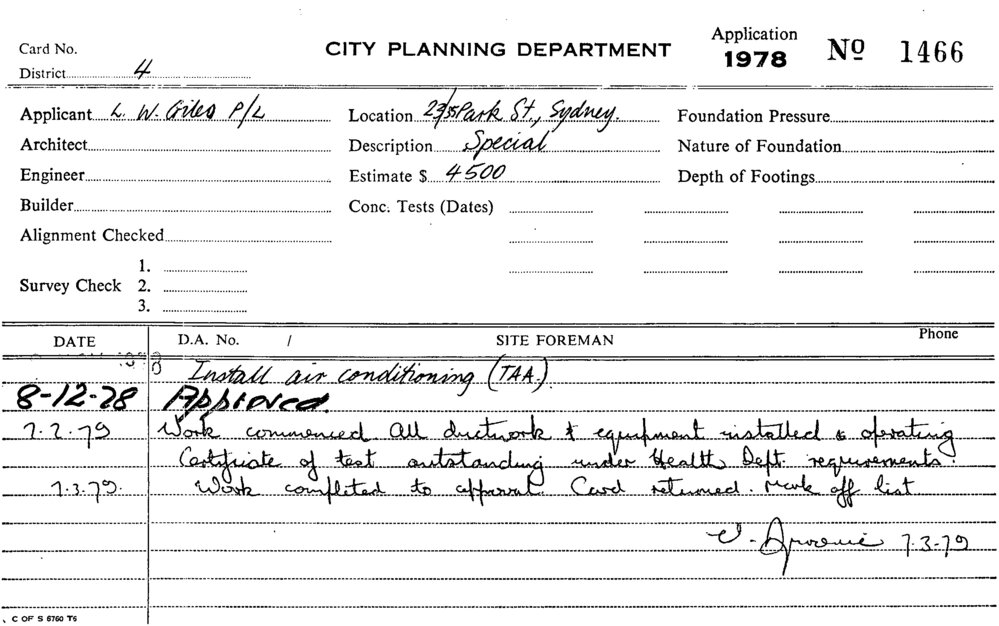 Card No. CITY PLANNING DEPARTMENT Application 1978 No 1466
District 4
Applicant L. W. Giles P/L Location 23/35 Park St., Sydney. Foundation Pressure
Architect Description Special Nature of Foundation
Engineer Estimate $ 4500 Depth of Footings
Builder Conc. Tests (Dates)
Alignment Checked
Survey Check 1.
2.
3.
DATE D.A. No. / SITE FOREMAN Phone
Install air conditioning (TAA).
8-12-78 Approved.
7.2.79 Work commenced All ductwork & equipment installed & operating
Certificate of test outstanding under Health Dept. requirements.
7.3.79. Work completed to approval. Card returned. Mark off list
7.3.79
C OF S 6760 T5